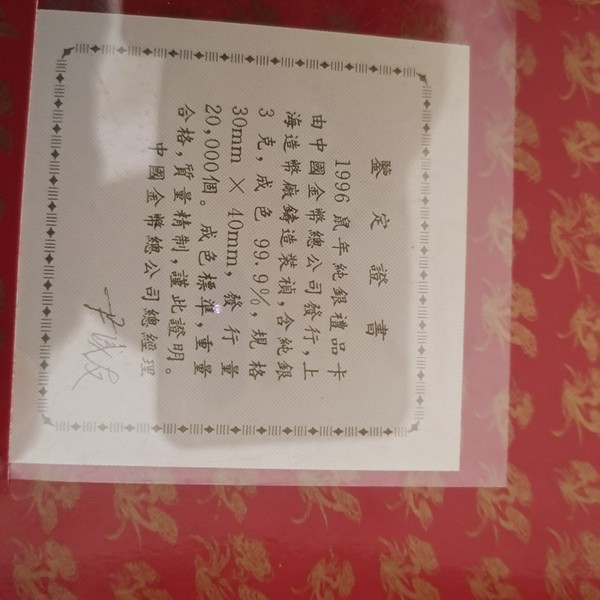 鑒定證書
1996 鼠年純銀禮品卡
由中國金幣總公司發行,上
海造幣廠鑄造裝禎,含純銀
3 克,成色 99.9%,規格
30mm × 40mm,發行量
20,000個。成色標準,重量
合格,質量精制,謹此證明。
中國金幣總公司總經理